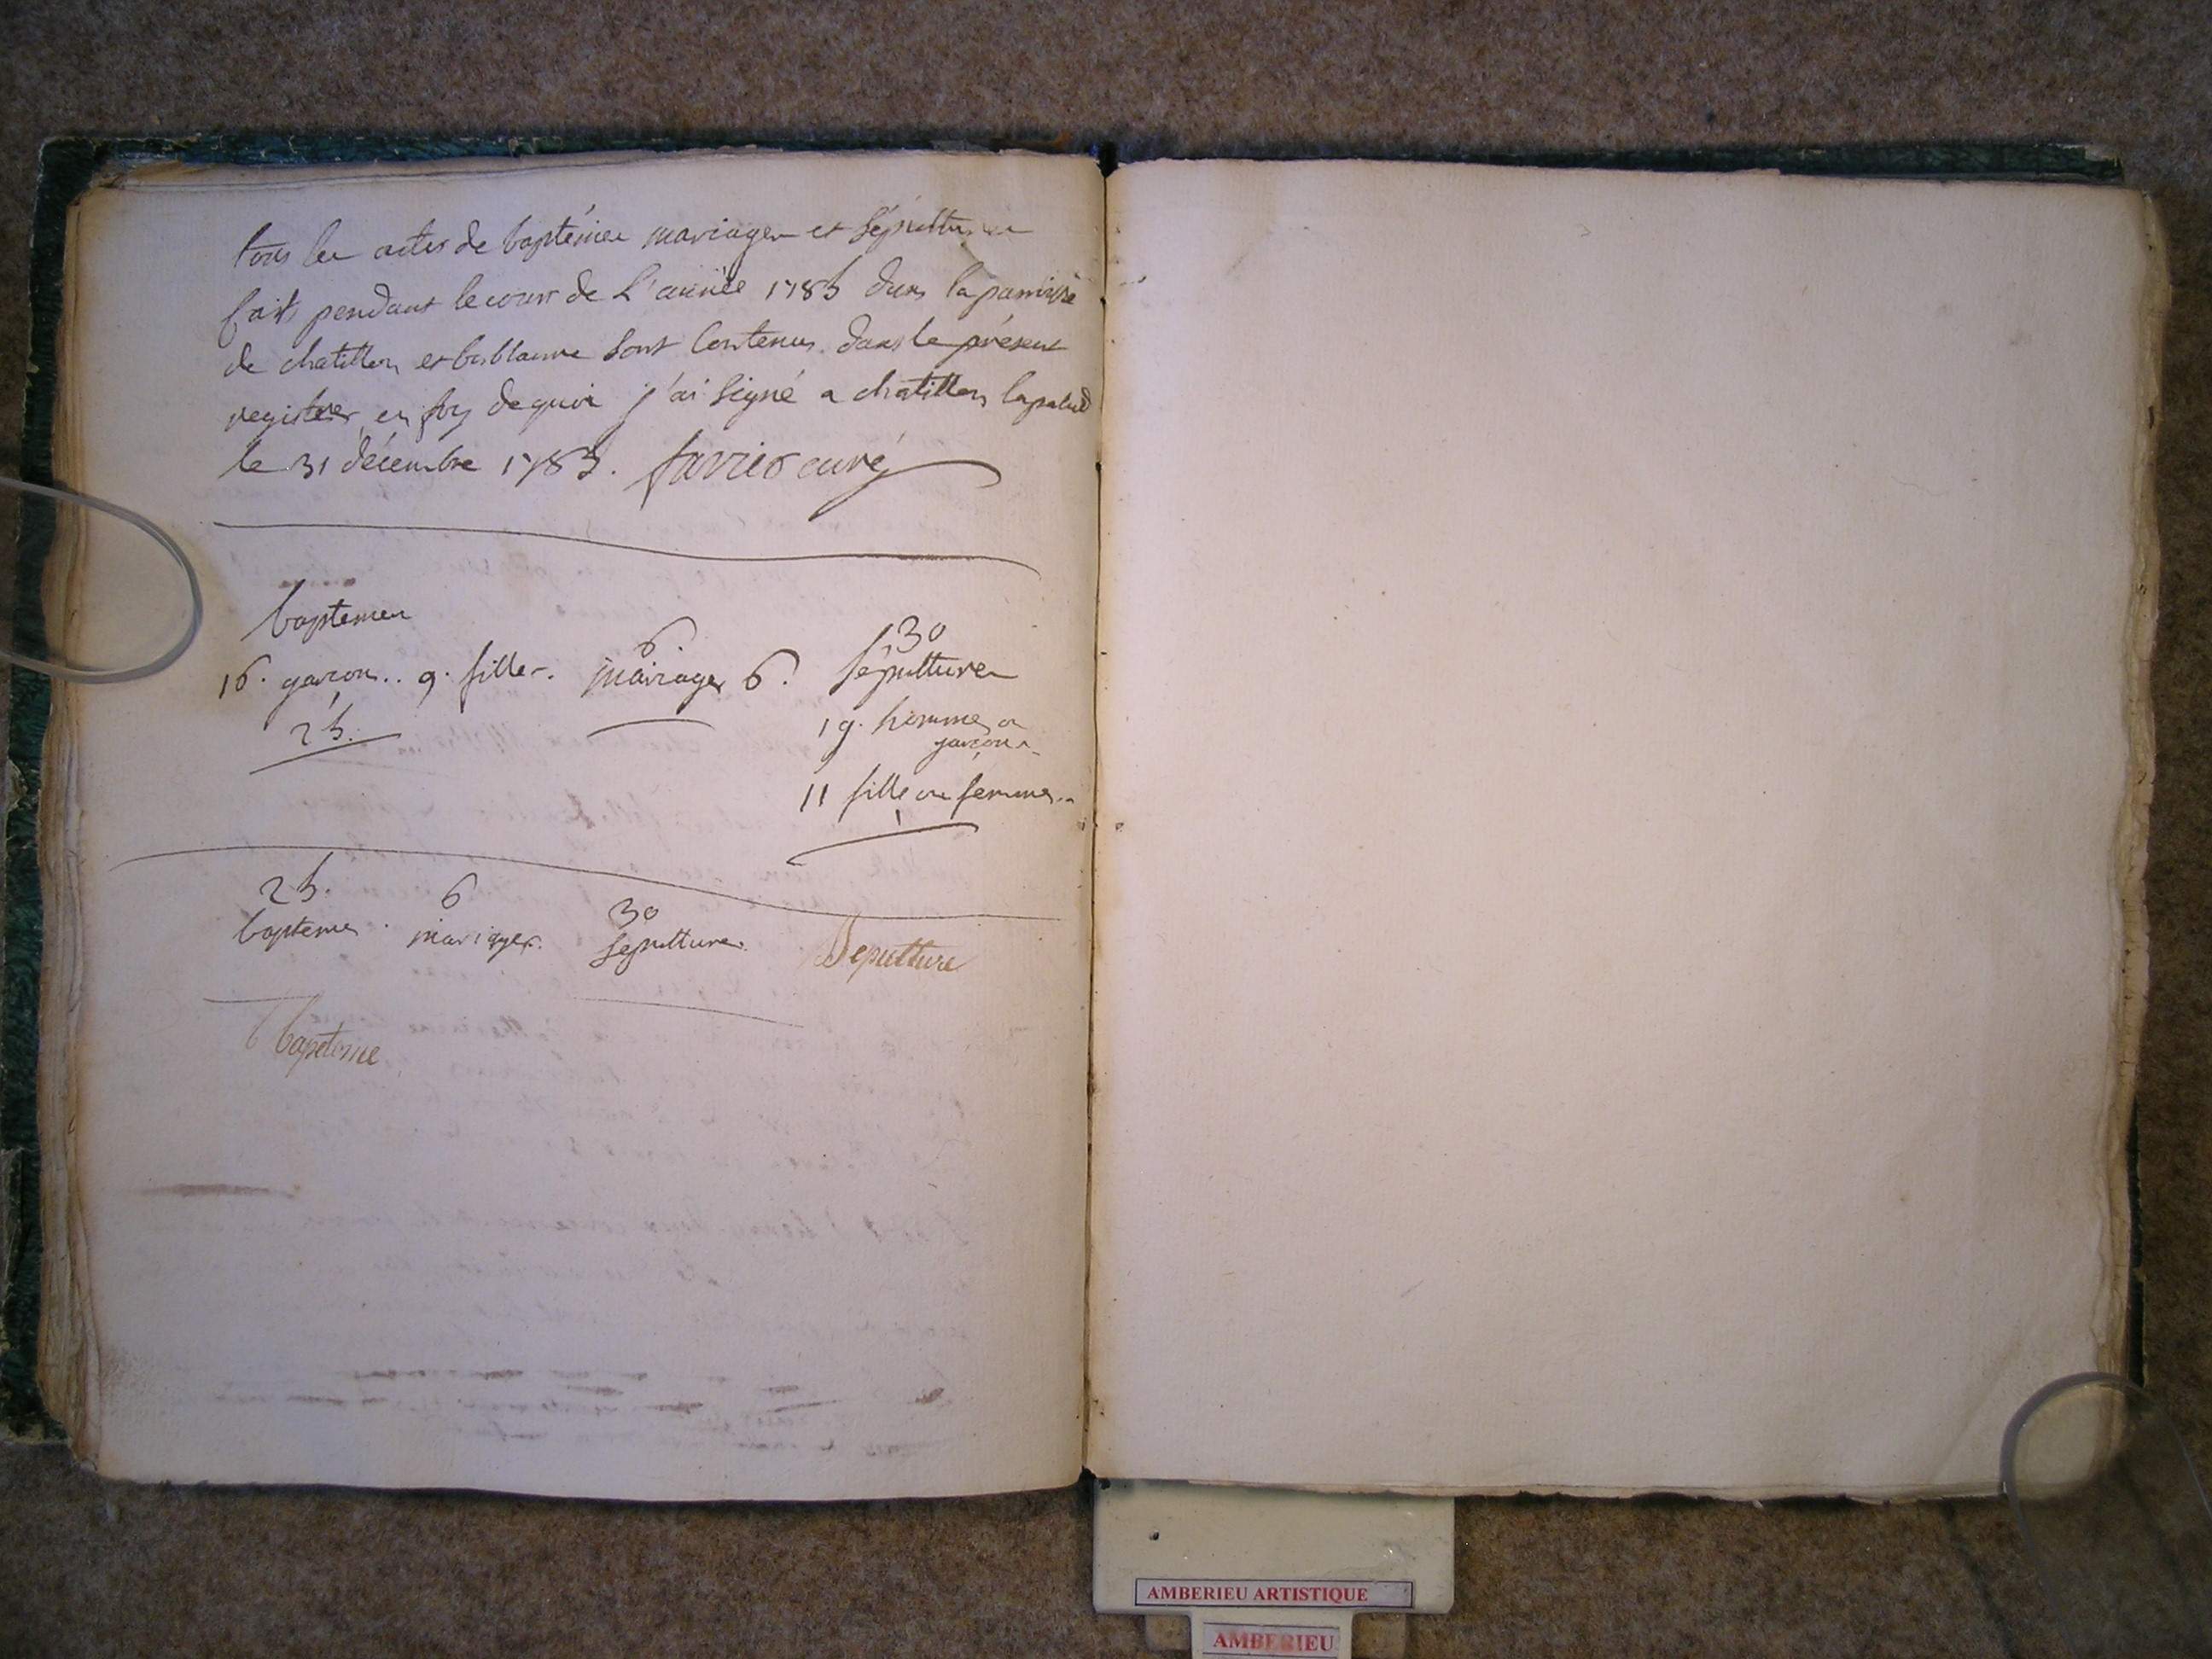 tous les actes de baptémes mariages et sépultures
faits pendant le cour de L'année 1785 dans la paroisse
de chatillon et bublanne sont Contenus dans le présent
registre, en foy de quoi j'ai signé a chatillon lapalud
le 31 décembre 1785. curé
baptemes
16. garcons.. 9. filles. 6 mariages 6. 30 sépultures
25.
19. hommes ou
garçons
11 filles ou femmes..
25. 6 30
baptemes. mariages. sepultures. Sepulture
b bapteme
AMBERIEU ARTISTIQUE
AMBERIEU